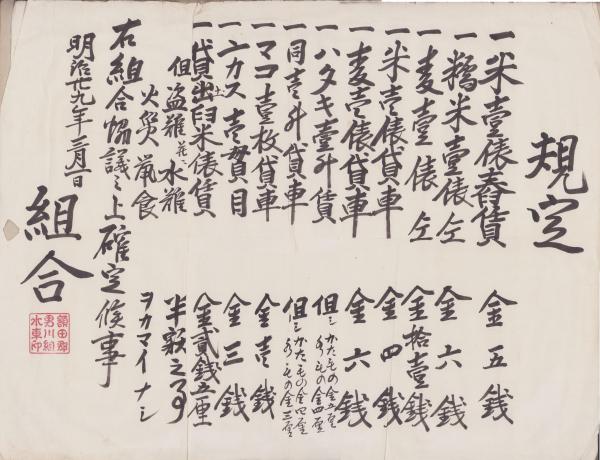 規定
一米壹俵舂賃 金五銭
一糯米壹俵仝 金六銭
一麦壹俵仝 金拾壹銭
一米壱俵貸車 金四銭
一麦壱俵貸車 金六銭
一ハタキ壹升賃 但シかたもの金五厘
金四厘
一同壱升貸車 但シかたもの金四厘
金三厘
一マコ壹枚貸車 金壱銭
一ヌカス壱貫目 金三銭
一貸出臼米俵賃 金貳銭五厘
但盗難 水難 半額之事
火災鼠食 ヲカマイナシ
右組合協議之上確定候事
明治廿九年三月一日
組合
額田郡
男川組
水車印